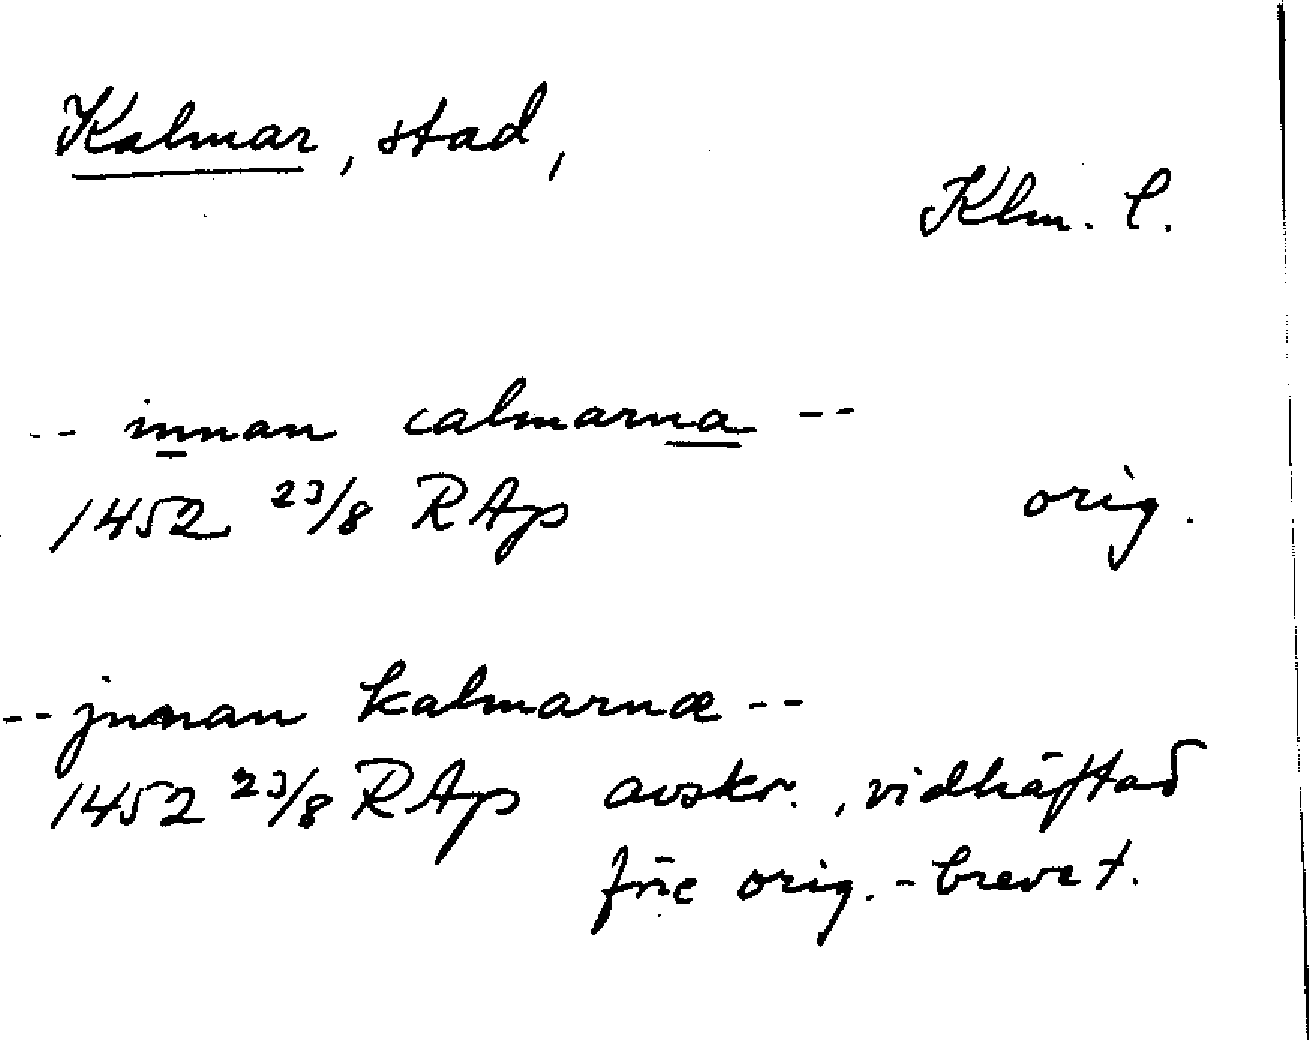 Kalmar, stad,
Klm. l.
-- innan calmarna --
1452 23/8 RAp orig.
-- jnnan kalmarnæ --
1452 23/8 RAp avskr., vidhäftad
orig.-brevet.